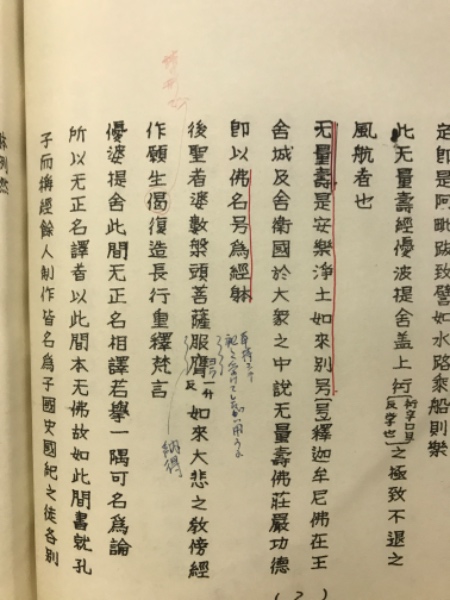 定即是阿毗跋致譬如水路乘船則樂
此无量壽經優波提舍蓋上衍之極致不退之
風航者也
无量壽是安樂淨土如來別号釋迦牟尼佛在王
舍城及舍衛國於大衆之中說无量壽佛莊嚴功德
即以佛名号為經躰
後聖者婆數槃頭菩薩服膺如來大悲之敎傍經
作願生偈復造長行重釋梵言
優婆提舍此間无正名相譯若舉一隅可名為論
所以无正名譯者以此間本无佛故如此間書就孔
子而稱經餘人制作皆名為子國史國紀之徒各別
(2)